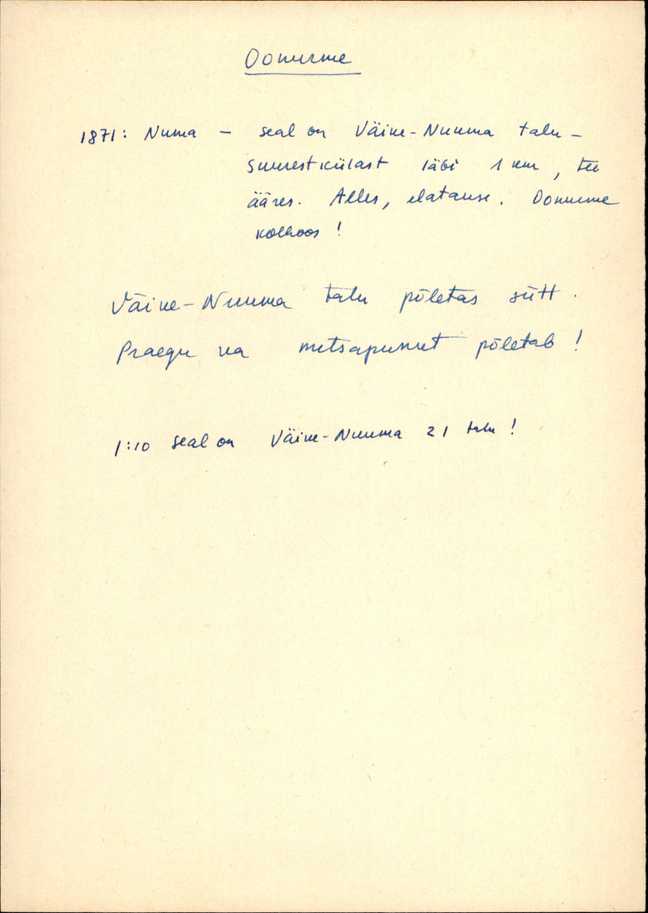 Oonurme
1871: Numa – seal on Väike-Nuuma talu –
suurest külast läbi 1 km, tee
ääres. Alles, elatakse. Oonurme
kolhoos!
Väike-Nuuma talu põletas sütt.
Praegu ka metsapunkt põletab!
1:10 seal on Väike-Nuuma 21 talu!